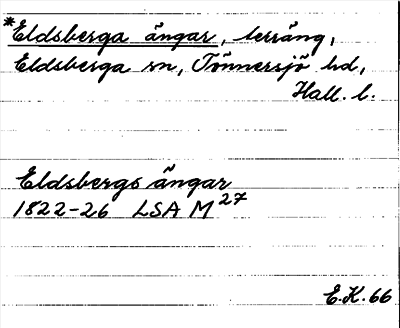 *Eldsberga ängar, terräng,
Eldsberga sn, Tönnersjö hd,
Hall. l.
Eldsbergs ängar
1822-26 LSA M27
E.K. 66